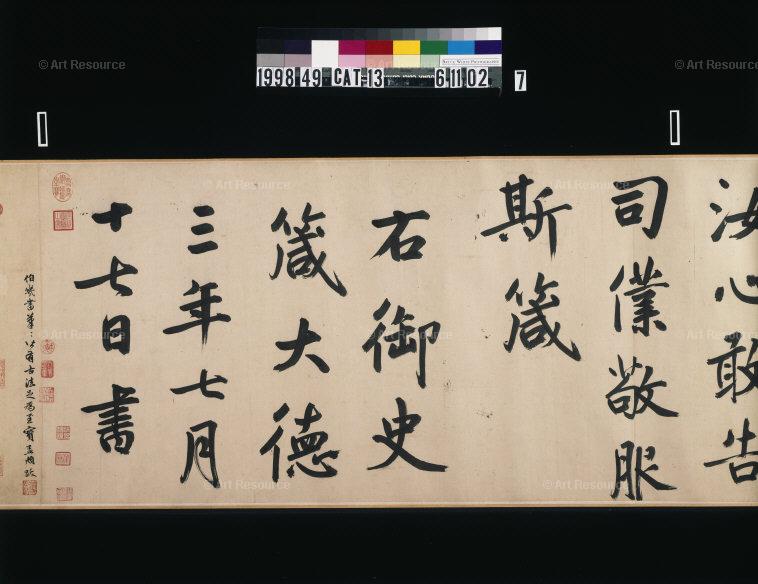 © Art Resource
© Art Resource
Bruce White Photography
1998 49 CAT 13 6 11 02 7
汝心敢告
司僕敬服
斯箴
右御史
箴大德
三年七月
十七日書
伯幾書筆〻皆有古法足為至寶孟頫跋
© Art Resource
© Art Resource
© Art Resource
© Art Resource
© Art Resource
© Art Resource
© Art Resource